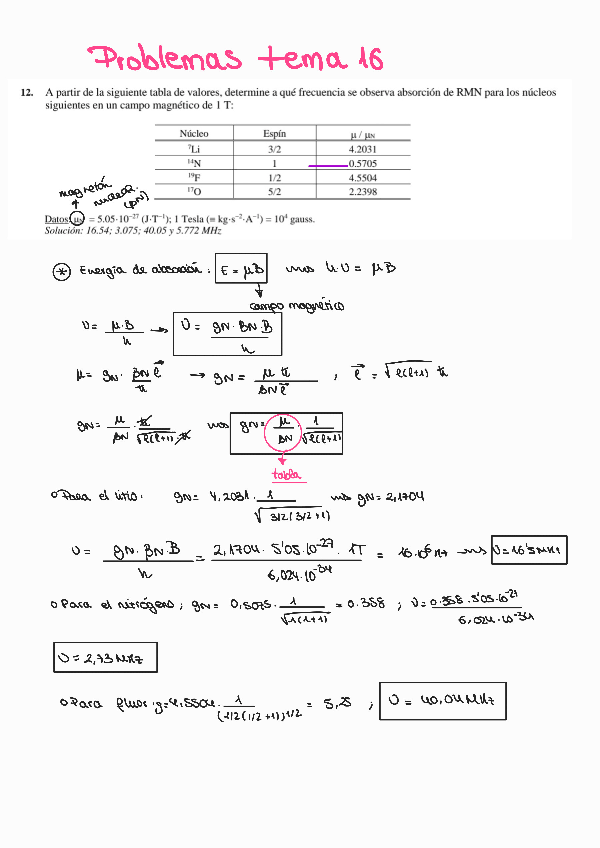 Problemas tema 16
12. A partir de la siguiente tabla de valores, determine a qué frecuencia se observa absorción de RMN para los núcleos
siguientes en un campo magnético de 1 T:
Núcleo Espín μ / μN
⁷Li 3/2 4.2031
¹⁴N 1 0.5705
¹⁹F 1/2 4.5504
¹⁷O 5/2 2.2398
magnetón
nuclear (βN)
Datos: μN = 5.05·10⁻²⁷ (J·T⁻¹); 1 Tesla (= kg·s⁻²·A⁻¹) = 10⁴ gauss.
Solución: 16.54; 3.075; 40.05 y 5.772 MHz
* Energía de absorción: E = μB h·υ = μB
campo magnético
υ = μ·B / h → υ = gN·βN·B / h
μ = gN · βN ℓ / ħ → gN = μ ħ / βN ℓ ; ℓ = √ℓ(ℓ+1) ħ
gN = μ / βN · ħ / √ℓ(ℓ+1)·ħ gN = μ / βN · 1 / √ℓ(ℓ+1)
tabla
○ Para el litio: gN = 4,2031 · 1 / √3/2(3/2+1) gN = 2,1704
υ = gN·βN·B / h = 2,1704 · 5'05·10⁻²⁷ · 1T / 6,024·10⁻³⁴ = 16·10⁶ Hz υ = 16'5 MHz
○ Para el nitrógeno; gN = 0,5075 · 1 / √1(1+1) = 0.358 ; υ = 0.358 · 5'05·10⁻²⁷ / 6,024·10⁻³⁴
υ = 2,73 MHz
○ Para fluor: g = 4,5504 · 1 / (1/2(1/2+1))^1/2 = 5,25 ; υ = 40,04 MHz